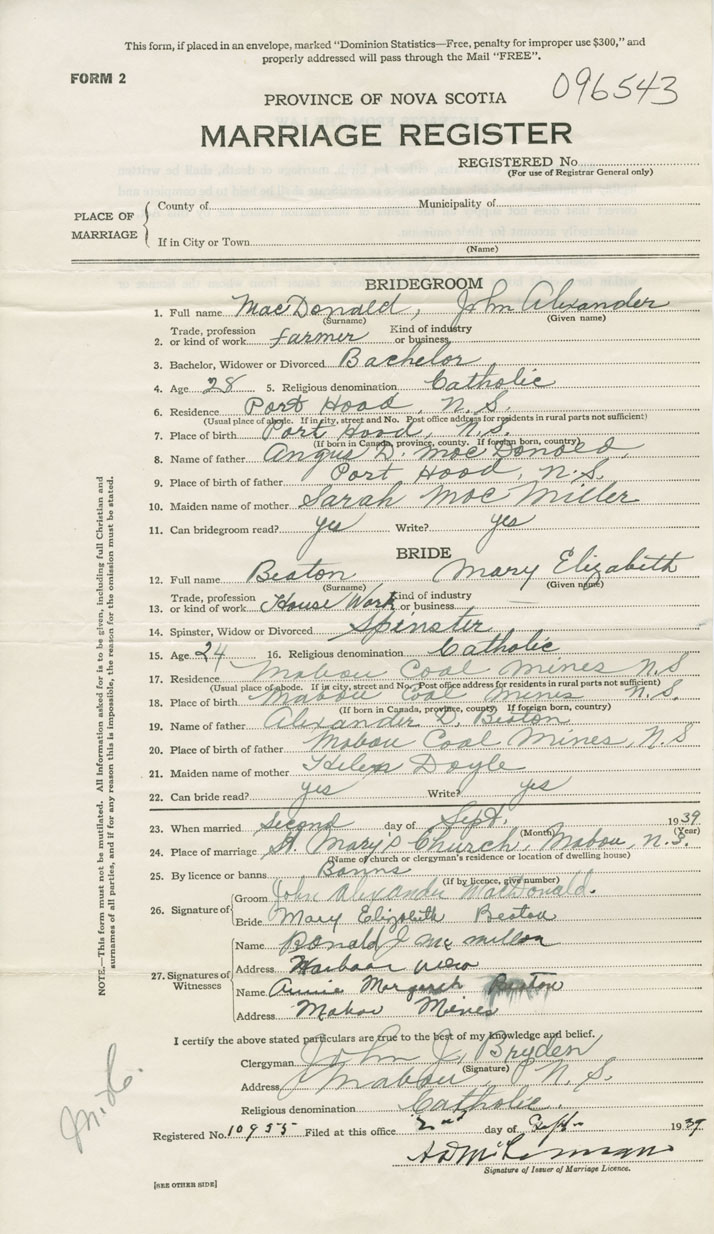 This form, if placed in an envelope, marked "Dominion Statistics—Free, penalty for improper use $300," and
properly addressed will pass through the Mail "FREE".
FORM 2
096543
PROVINCE OF NOVA SCOTIA
MARRIAGE REGISTER
REGISTERED No.
(For use of Registrar General only)
PLACE OF MARRIAGE
County of Municipality of
If in City or Town
(Name)
BRIDEGROOM
1. Full name MacDonald, John Alexander
(Surname) (Given name)
2. Trade, profession or kind of work Farmer Kind of industry or business
3. Bachelor, Widower or Divorced Bachelor
4. Age 28 5. Religious denomination Catholic
6. Residence Port Hood, N.S.
(Usual place of abode. If in city, street and No. Post office address for residents in rural parts not sufficient)
7. Place of birth Port Hood, N.S.
(If born in Canada, province, county. If foreign born, country)
8. Name of father Angus D. MacDonald,
9. Place of birth of father Port Hood, N.S.
10. Maiden name of mother Sarah Mac Miller
11. Can bridegroom read? yes Write? yes
BRIDE
12. Full name Beaton Mary Elizabeth
(Surname) (Given name)
13. Trade, profession or kind of work House Work Kind of industry or business —
14. Spinster, Widow or Divorced Spinster
15. Age 24 16. Religious denomination Catholic
17. Residence Mabou Coal Mines N.S
(Usual place of abode. If in city, street and No. Post office address for residents in rural parts not sufficient)
18. Place of birth Mabou Coal Mines N.S.
(If born in Canada, province, county. If foreign born, country)
19. Name of father Alexander D. Beaton
20. Place of birth of father Mabou Coal Mines, N.S
21. Maiden name of mother Helen Doyle
22. Can bride read? yes Write? yes
23. When married second day of Sept. 1939
(Month) (Year)
24. Place of marriage St. Mary's Church, Mabou, N.S.
(Name of church or clergyman's residence or location of dwelling house)
25. By licence or banns Banns
(If by licence, give number)
26. Signature of
Groom John Alexander MacDonald.
Bride Mary Elizabeth Beaton
27. Signatures of Witnesses
Name Ronald J Mc millan
Address Harbour view
Name Annie Margaret Beaton
Address Mabou Mines
I certify the above stated particulars are true to the best of my knowledge and belief.
Clergyman John J. Bryden
(Signature)
Address Mabou, N.S.
Religious denomination Catholic.
Registered No. 10955 Filed at this office 2nd day of Sept 1939
Signature of Issuer of Marriage Licence.
[SEE OTHER SIDE]
NOTE.—This form must not be mutilated. All information asked for is to be given, including full Christian and
surnames of all parties, and if for any reason this is impossible, the reason for the omission must be stated.